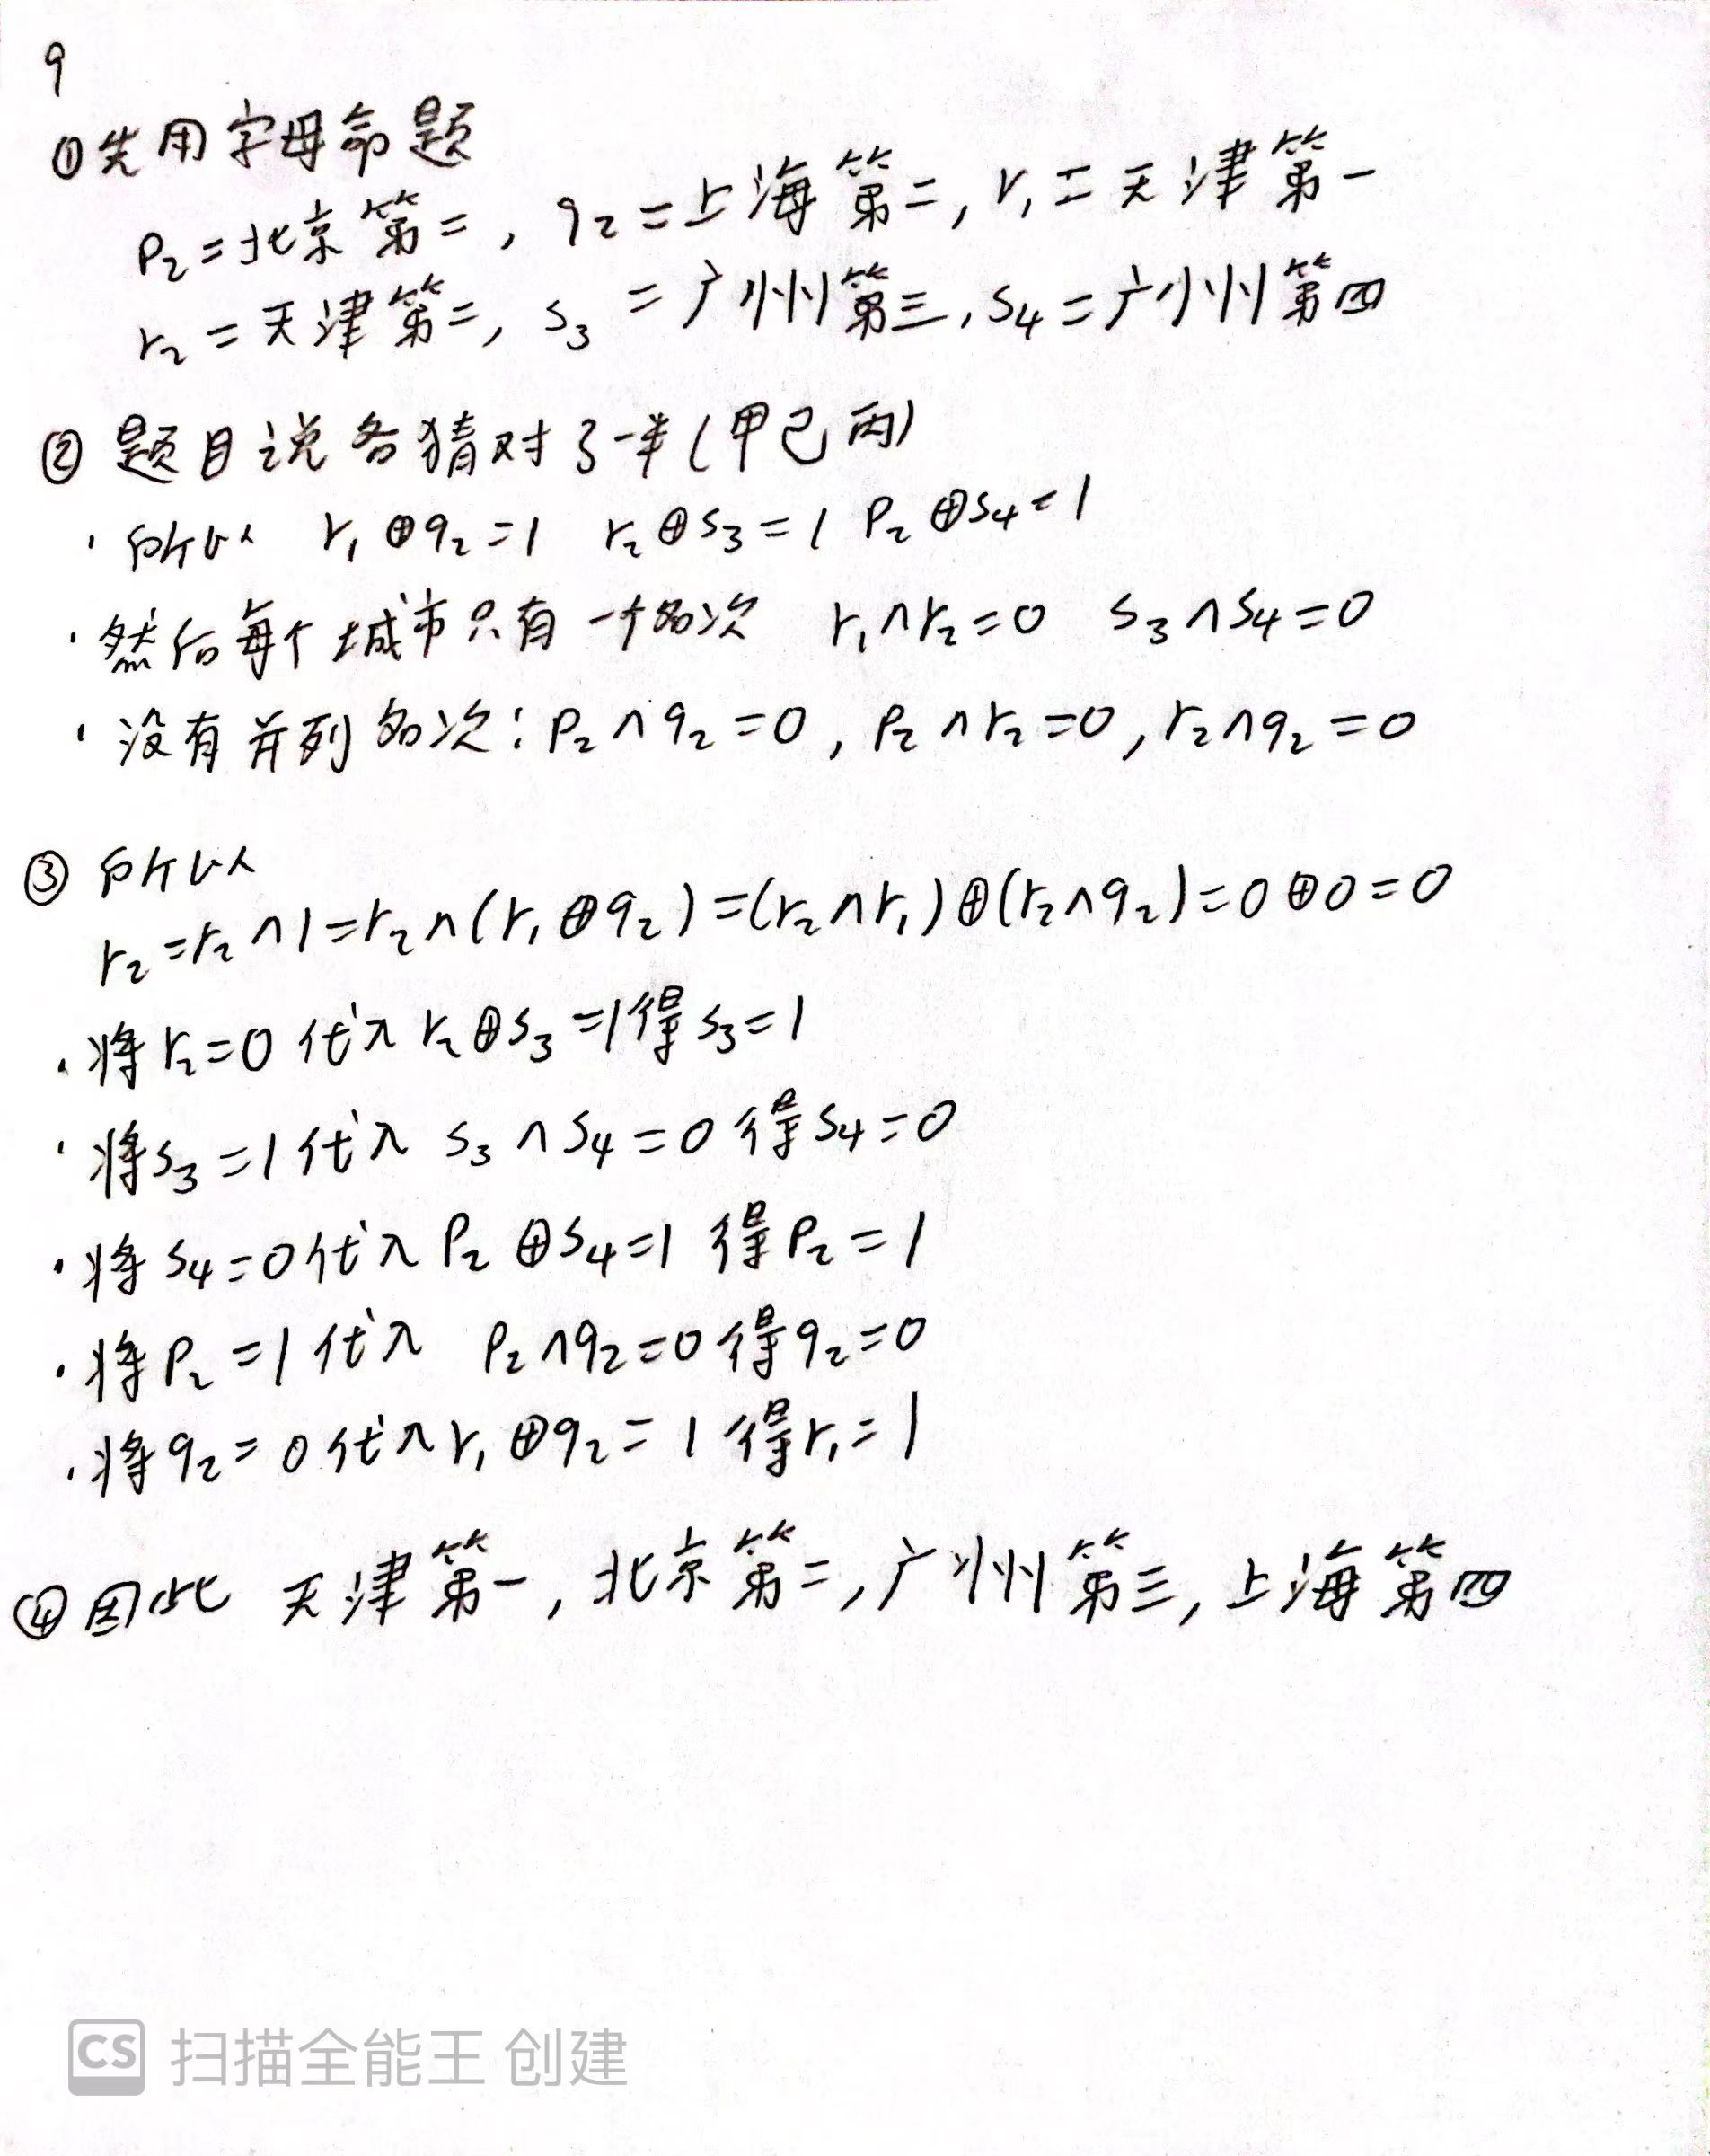 9
①先用字母命题
P₂=北京第二, q₂=上海第二, r₁=天津第一
r₂=天津第二, s₃=广州第三, s₄=广州第四
② 题目说各猜对了一半(甲己丙)
· 所以 r₁⊕q₂=1 r₂⊕s₃=1 P₂⊕s₄=1
· 然后每个城市只有一个名次 r₁∧r₂=0 s₃∧s₄=0
· 没有并列名次: P₂∧q₂=0, P₂∧r₂=0, r₂∧q₂=0
③ 所以
r₂=r₂∧1=r₂∧(r₁⊕q₂)=(r₂∧r₁)⊕(r₂∧q₂)=0⊕0=0
· 将r₂=0代入r₂⊕s₃=1得s₃=1
· 将s₃=1代入 s₃∧s₄=0得s₄=0
· 将s₄=0代入P₂⊕s₄=1 得P₂=1
· 将P₂=1代入 P₂∧q₂=0得q₂=0
· 将q₂=0代入r₁⊕q₂=1得r₁=1
④因此 天津第一, 北京第二, 广州第三, 上海第四
CS 扫描全能王 创建